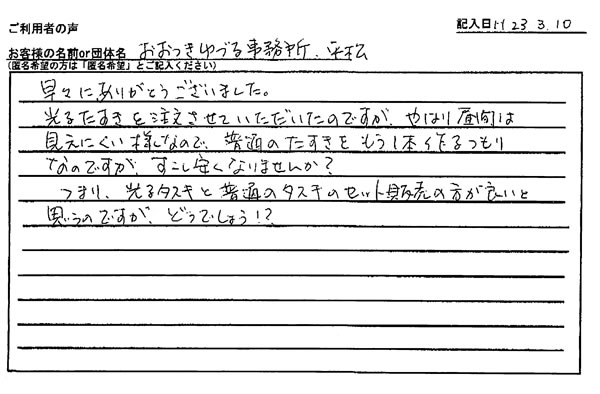 ご利用者の声
記入日 H 23 3.10
お客様の名前or団体名 おおつきゆづる事務所、平松
(匿名希望の方は「匿名希望」とご記入ください)
早々にありがとうございました。
光るたすきを注文させていただいたのですが、やはり昼間は
見えにくい様なので、普通のたすきをもう1本作るつもり
なのですが、すこし安くなりませんか?
つまり、光るタスキと普通のタスキのセット販売の方が良いと
思うのですが、どうでしょう!?